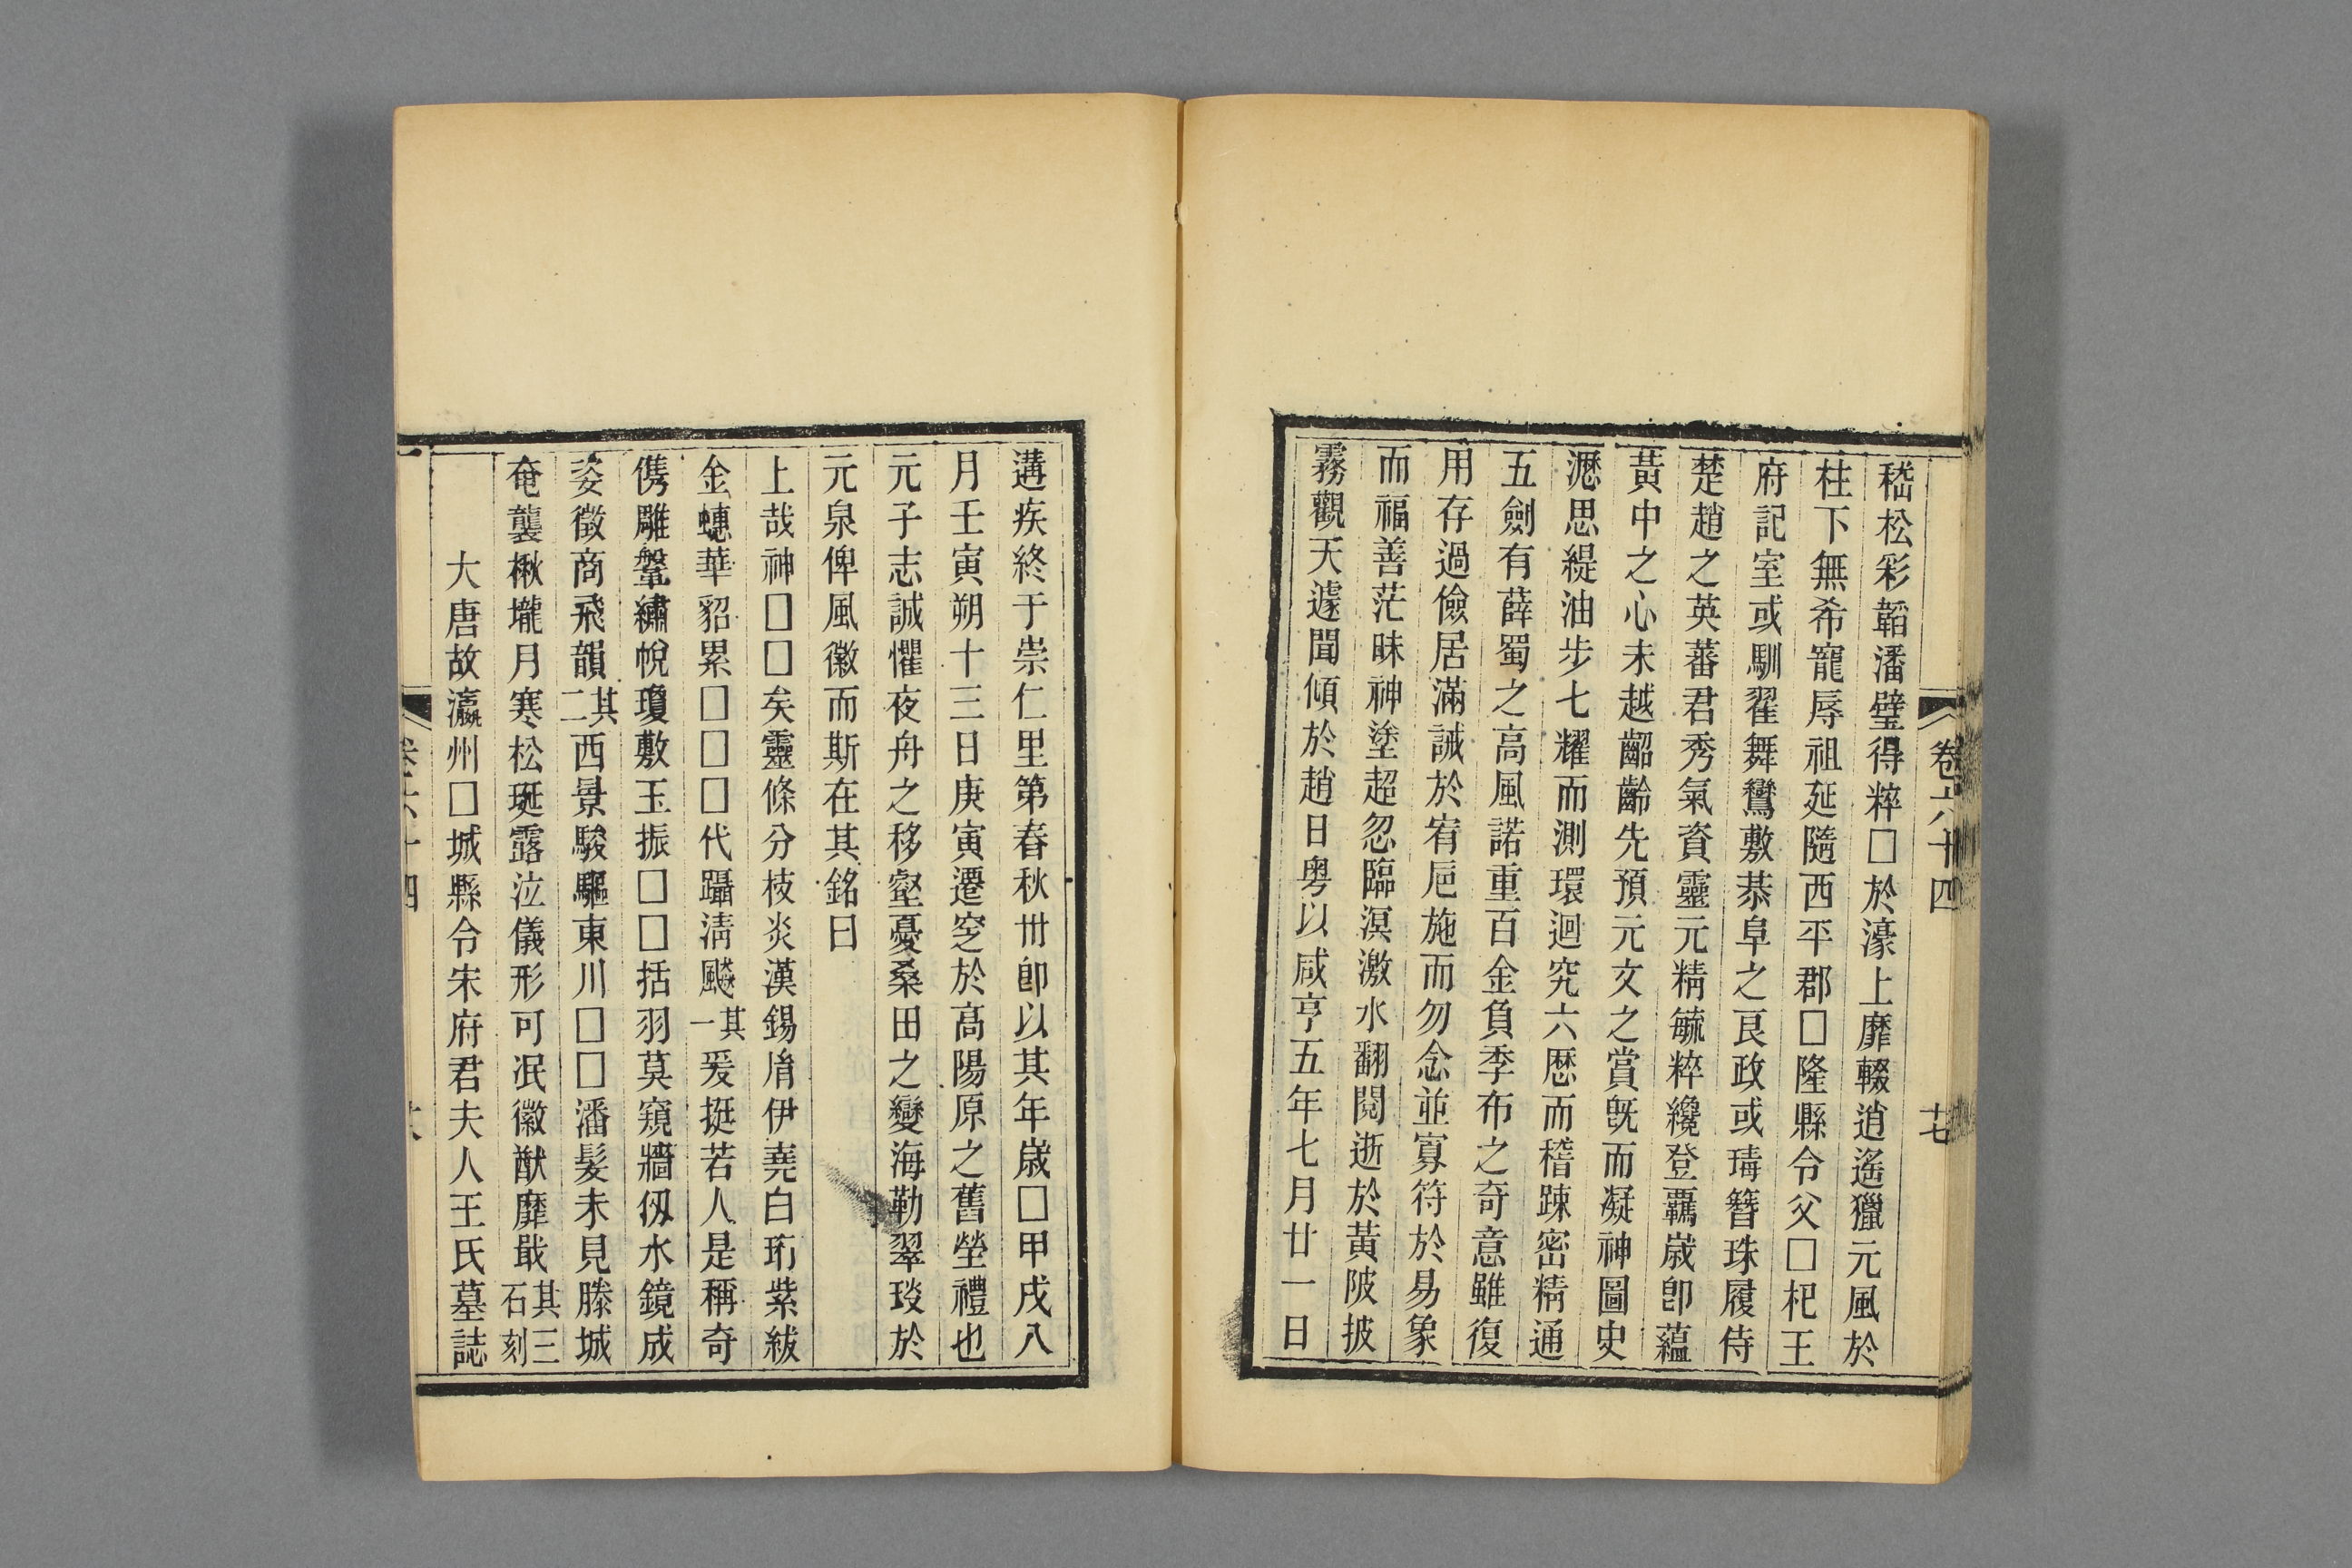 卷六十四
廿七
嵇松彩韜潘璧得粹□於濠上靡輟逍遙獵元風於
柱下無希寵辱祖延隨西平郡□隆縣令父□杞王
府記室或馴翟舞鸞敷恭阜之良政或璹簪珠履侍
楚趙之英蕃君秀氣資靈元精毓粹纔登覊歲卽蘊
黃中之心未越齠齡先預元文之賞旣而凝神圖史
瀝思緹油步七耀而測環迴究六歷而稽踈密精通
五劍有薛蜀之高風諾重百金負季布之奇意雖復
用存過儉居滿誡於宥巵施而勿念並寡符於易象
而福善茫昧神塗超忽臨溟激水翻閱逝於黃陂披
霧觀天遽聞傾於趙日粤以咸亨五年七月廿一日
遘疾終于崇仁里第春秋卅卽以其年歲□甲戌八
月壬寅朔十三日庚寅遷窆於高陽原之舊塋禮也
元子志誠懼夜舟之移壑憂桑田之變海勒翠琰於
元泉俾風徽而斯在其銘曰
上哉神□□矣靈條分枝炎漢錫胤伊堯白珩紫紱
金蟪華貂累□□□代躡淸飈其一爰挺若人是稱奇
儁雕鞶繡帨瓊敷玉振□□括羽莫窺牆仭水鏡成
姿徵商飛韻其二西景駿驅東川□□潘髮未見滕城
奄襲楸壠月寒松埏露泣儀形可泯徽猷靡戢其三石刻
大唐故瀛州□城縣令宋府君夫人王氏墓誌